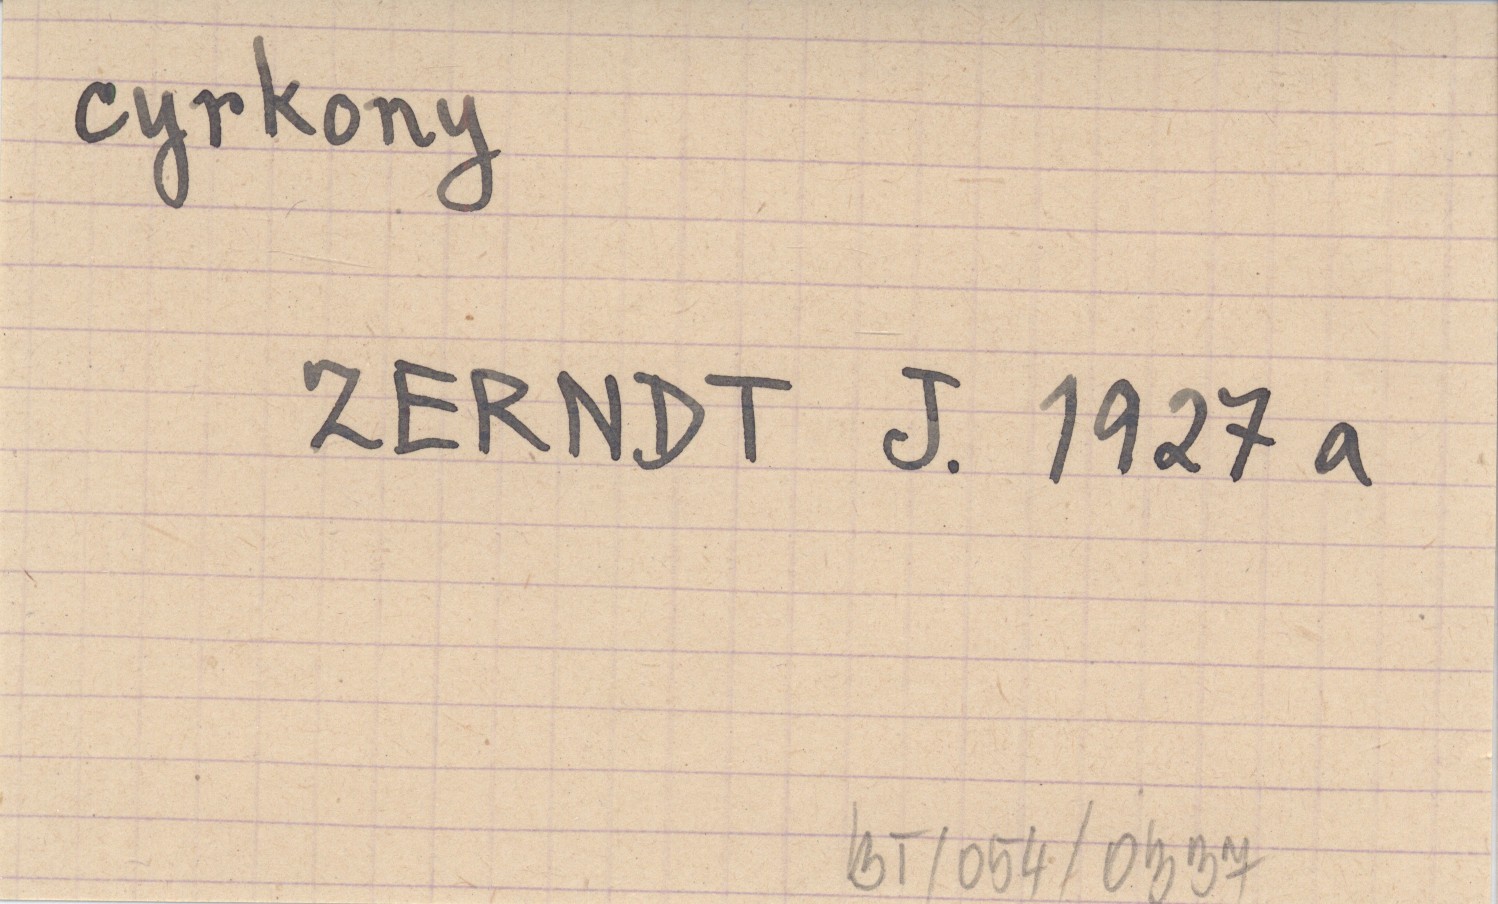 cyrkony
ZERNDT J. 1927 a
BT/054/0337